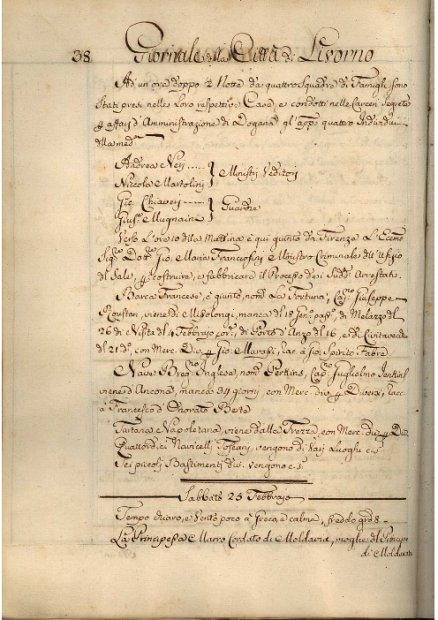 38 Giornale della Città di Livorno
Ad un'ora doppo 2 Notte da quattro Squadre di Famigli sono
Stati presi nelle Loro rispettive Case, e condotti nelle Carceri Segrete
affari d'Amministrazione di Dogana gl'app. quattro Individui
della med.
Andrea Neri
Niccola Bartolini } Ministri Veditori
Gio. Chiaveri
Gius. Mugnaini } Guardie
Verso L'ore 10 della Mattina è qui giunto da Firenze L'Eccmo
Sigr. Dott. Gio. Maria Franceschini Ministro Criminale dell'Ufizio
del Sale, costruire, e fabbricare il Processo dei Sudd. Arrestati.
Barca Francese, è giunto, nomta La Fortuna, Cap. Giuseppe
Roustan, viene di Missolongi, manca del 18 Genn. pass. di Melazzo del
26 di Nisita del 4 Febbraio corr. di Porto d'Anzo del 16, e di Civitavecc.
del 21 do, con Merc. Div. Gio Marassi, racc. a Gio: Spirito Fabre
Nave Inglese, nomta Perkins, Cap. Guglielmo Jenkins
viene d'Ancona, manca 34 giorni con Merc. div. Diversi, racc.
a Francesco d'Onorato Berte
Tartana Napoletana, viene dalla Trezza, con Merc. div.
Quattordici Navicelli Toscani, vengono di varj Luoghi
Sei piccoli Bastimenti div. vengono c. s.
Sabbato 25 Febbrajo
Tempo chiaro, e Vento poco a greco, e calma, freddo grd. 8
La Principessa Mauro Cordato di Moldavia, moglie del Principe
di Moldavia